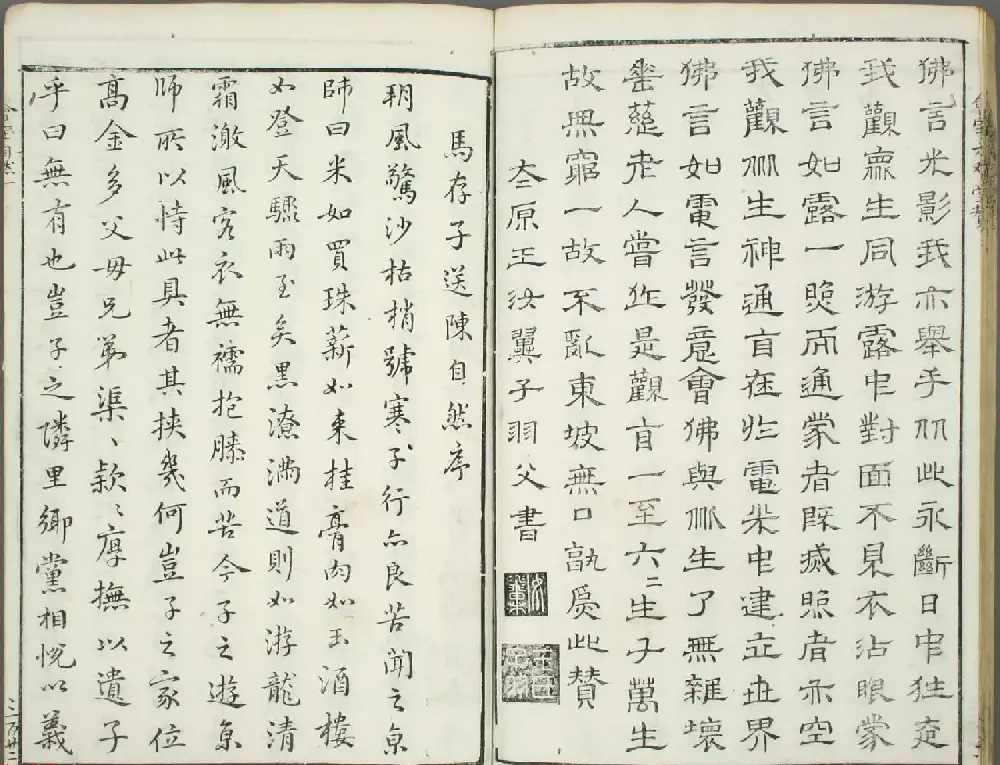 佛言光影我亦舉手從此永斷日中狂走
我觀眾生同游露中對面不見衣沾眼蒙
佛言如露一照而通蒙者既滅照者亦空
我觀從生神通盲在於電光中建立世界
佛言如電言發意會佛與從生了無雜壞
垂慈老人嘗作是觀盲一至六二生子萬生
故無窮一故不亂東坡無口孰為此贊
太原王汝翼子羽父書
馬存子送陳自然序
朔風驚沙枯梢號寒子行亦良苦聞之京
師曰米如買珠薪如束桂膏肉如玉酒樓
如登天驟雨至矣黑潦滿道則如游龍清
霜激風客衣無襦抱膝而苦今子之遊京
師所以恃此具者其挾幾何豈子之家位
高金多父母兄弟渠渠款款厚撫以遺子
乎曰無有也豈子之隣里鄉黨相悅以義